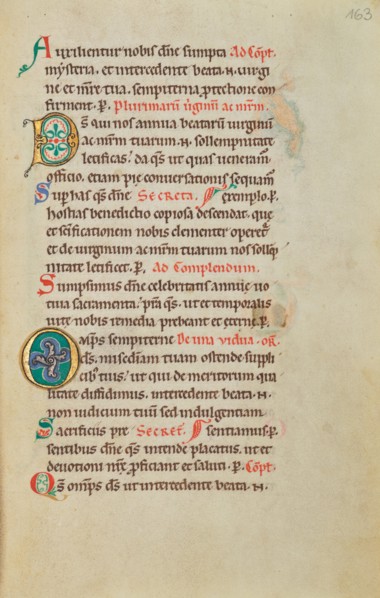 163
Auxilientur nobis dñe sumpta Ad Cōpł.
mysteria. et intercedente beata .N. uirgi
ne et m̄re tua. sempiterna ꝓtectione con
firment. ꝑ. Plurimarū ũginū ac m̄rm.
DS̄ qui nos annua beatarũ uirginũ
ac m̄rm tuarum .N. sollempnitate
letificas. da q̄s ut quas ueneram̃
officio. etiam pie conuersationis sequam̃
Sup has q̄s dñe Secreta. exemplo. ꝑ.
hostias benedictio copiosa descendat. que
et sc̄ificationem nobis clementer operet̃
et de uirginum ac m̄rm tuarum nos sollep̃
nitate letificet. ꝑ. Ad Complendum.
Sumpsimus dñe celebritatis annue uo
tiua sacramenta. p̃ra q̄s. ut et temporalis
uite nobis remedia prebeant et eterne. ꝑ.
Omp̄s sempiterne De una uidua. or̃.
ds̄. misc̄diam tuam ostende suppli
cibꝰ tuis. ut qui de meritorum qua
litate diffidimus. intercedente beata .N.
non iudicium tuũ sed indulgentiam
Sacrificiis pre Secret̃. sentiamus. ꝑ.
sentibus dñe q̄s intende placatus. ut et
deuotioni nr̄e ꝓficiant et saluti. ꝑ. Cōpł.
Qs̄ omp̄s ds̄ ut intercedente beata .N.